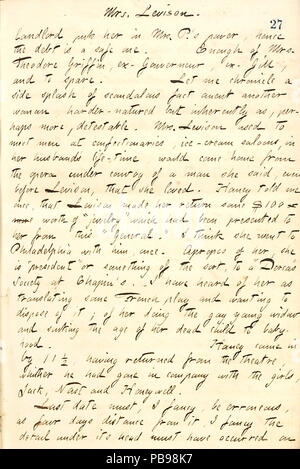 27
Mrs. Levison.
Landlord puts her in Mrs. P.'s power, hence
the debt is a safe one. Enough of Mrs.
Theodore Griffin, ex-Gouverneur, ex-Gill,
and to spare. Let me chronicle a
side splash of scandalous fact anent another
woman harder-natured but inherently as, per-
haps more, detestable. Mrs. Levison used to
meet men at confectionaries, ice-cream saloons, in
her husbands life-time would come home from
the opera under convoy of a man she said, even
before Levison, that she loved. Haney told me
once, that Levison made her return some $100
worth of "jewelry" which had been presented to
her from this General. I think she went to
Philadelphia with him, once. Apropos of her she
is "president" or something of the sort, to a Dorcas
Society at Chapin's! I have heard of her as
translating some French play and wanting to
dispose of it; of her doing the gay young widow
and sinking the age of her dead child to baby-
hood. Haney came in
by 11 1/2 having returned from the theatre,
whither he had gone in company with the girls
Jack, Nast and Honeywell.
Last date must, I fancy be erroneous,
as four days distance from it, I fancy the
detail under its head must have occurred on
alamy
PB98K7